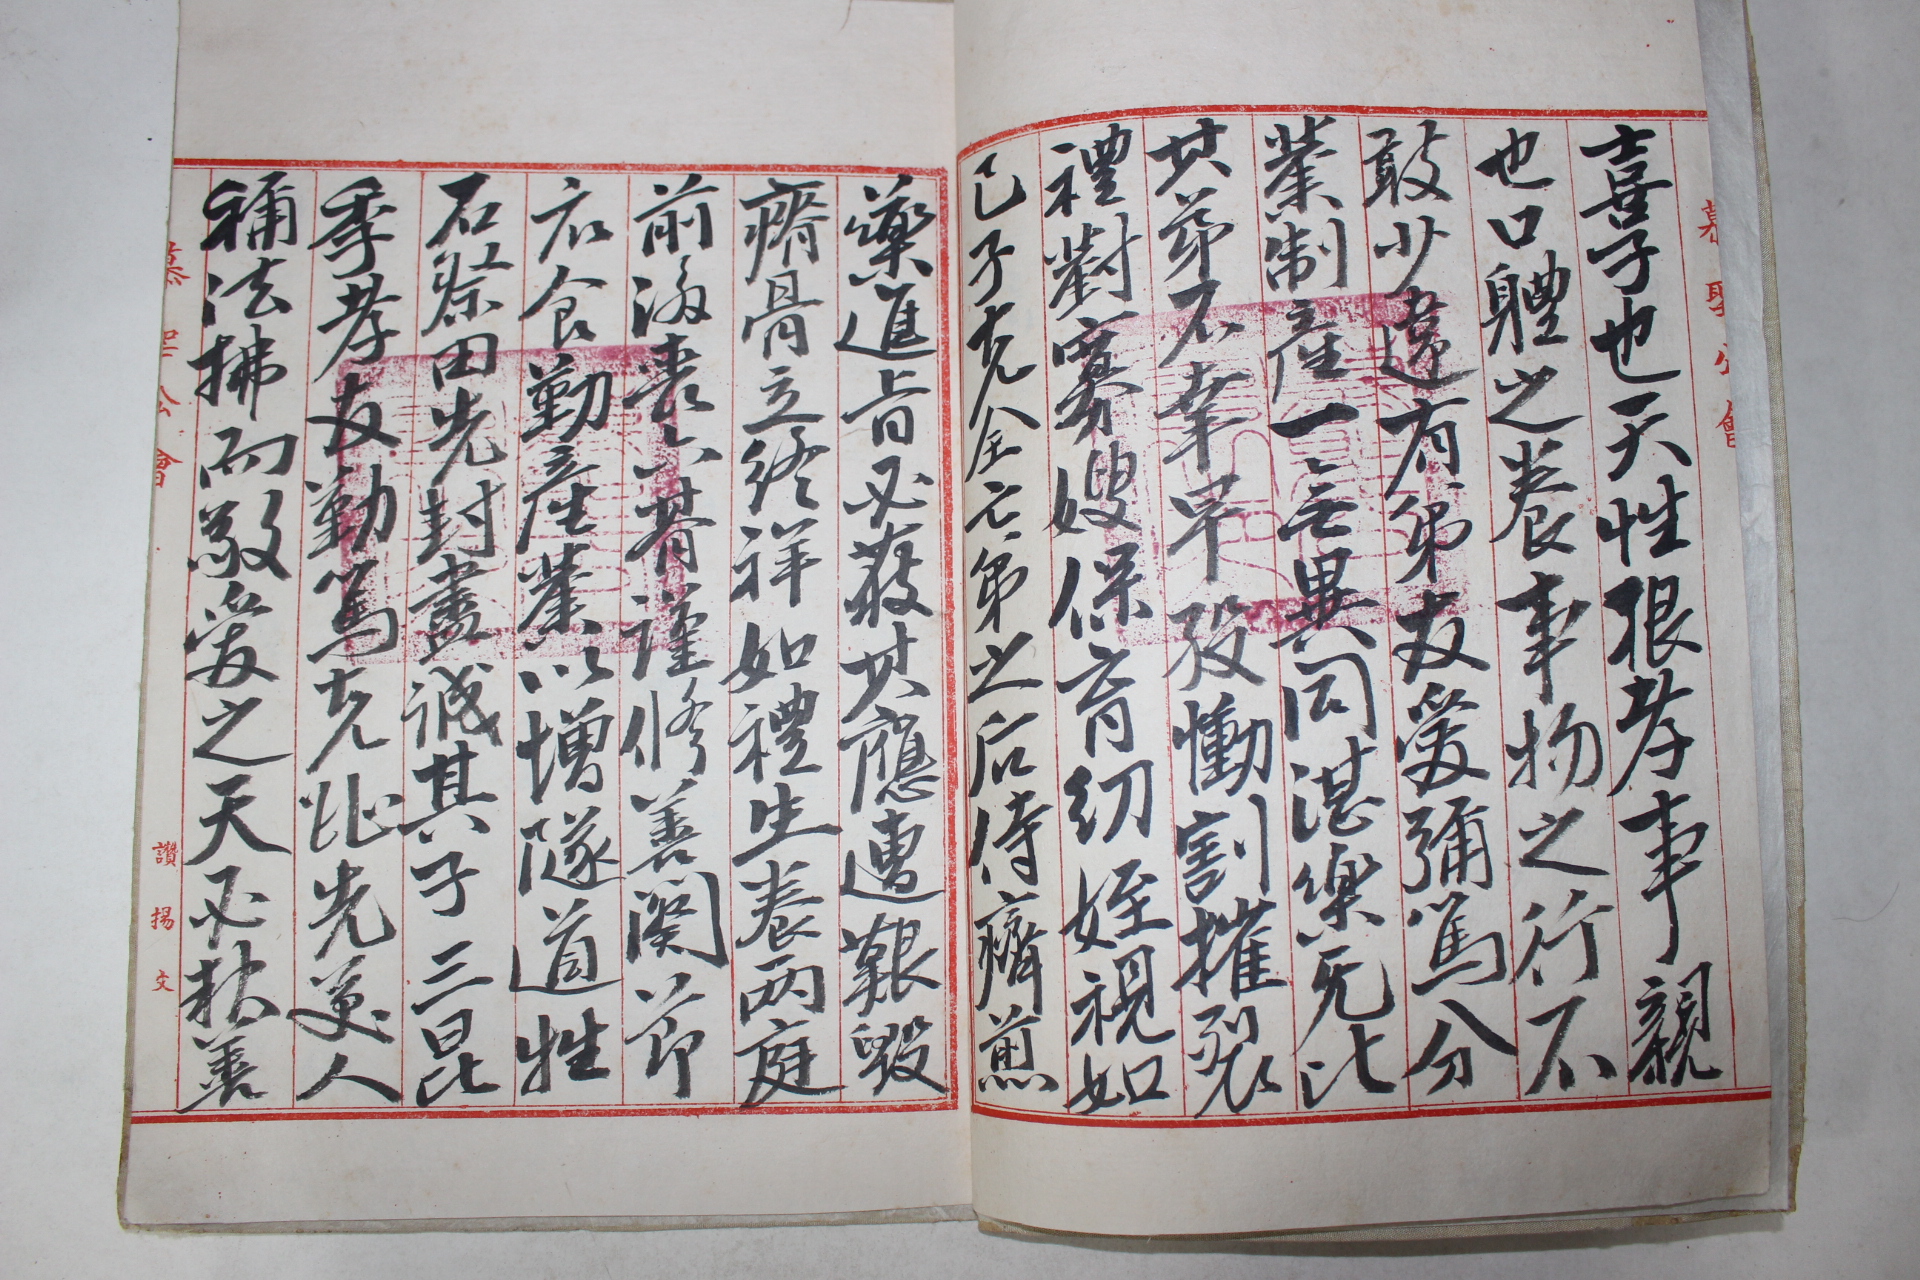 喜子也天性根孝事親
也口體之養事物之行不
敢少違有弟友愛彌篤分
業制產一無異同湛樂旡比
其弟不幸早歿慟割摧裂
禮對寡嫂保育幼姪視如
己子克全亡弟之后侍癠煎
藥進旨必获其應遭艱毀
瘠骨立終祥如禮生養两庭
前後喪六朞謹修善闋節
衣食勤產業以增隧道牲
石祭田先封盡誠其子三昆
季孝友勤篤克趾先美人
稱法拂而敬愛之天必秋善
慕聖公會
讚揚文